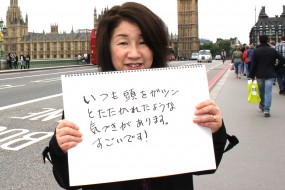 いつも頭をガツン
とたたかれたような
気づきがあります。
すごいです!